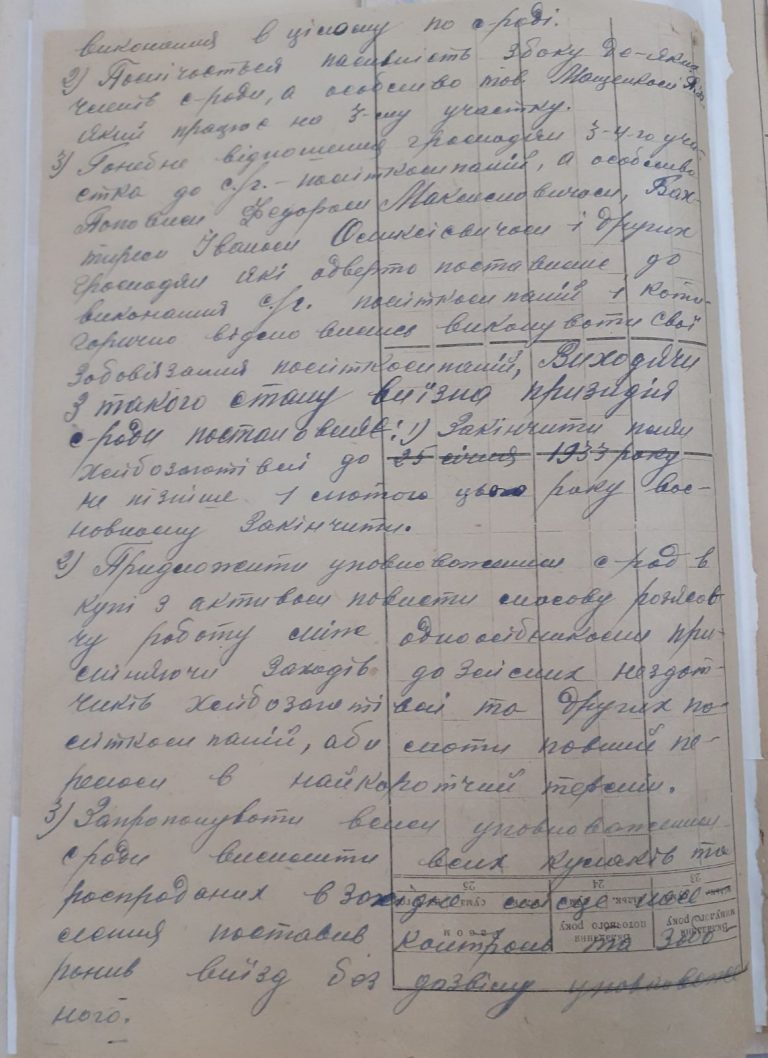 виконання в цілому по с-раді.
2) Помічається пасивність збоку де-яких
членів с-ради, а особливо тов. Мащенкові
який працює на 3-му участку.
3) Ганебне відношення громадян 3-4-го уча-
стка до с./г. – політкомпаній, а особливо
Поповим Федором Максимовичом, Бах-
тирем Іваном Олексієвичом і других
громадян які одверто поставлине до
виконання с./г. політкомпаній і кате-
горично відмовились виконувати свої
зобовіязання політкомпаній, Виходячи
З такого стану виїзна призидія
с-ради постановляє: 1) Закінчити план
хлібозаготівлі до 25 січня 1933 року
не пізніше 1 лютого цього року вос-
новному Закінчити.
2) Придложити уповноваженим с-рад в
купі з активом повисти масову розясов
чу роботу між одноосібниками при-
міняючи Заходів до злісних нездат-
чиків хлібозаготівлі та других по-
літкомпаній, аби мати повний пе-
релом в найкоротчий термін.
3) Запропонувати всим уповноваженим
с-ради вислати всих куляків та
роспроданих в
лення поставив контроль та Забо-
ронив виїзд без дозвілу уповноваже
ного.
23
24
25
сума
Вкладання минулого року
Вкладання поточного року
Васом